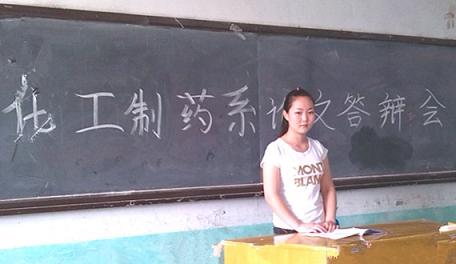 化工制药系论文答辩会
MONT
BLANC